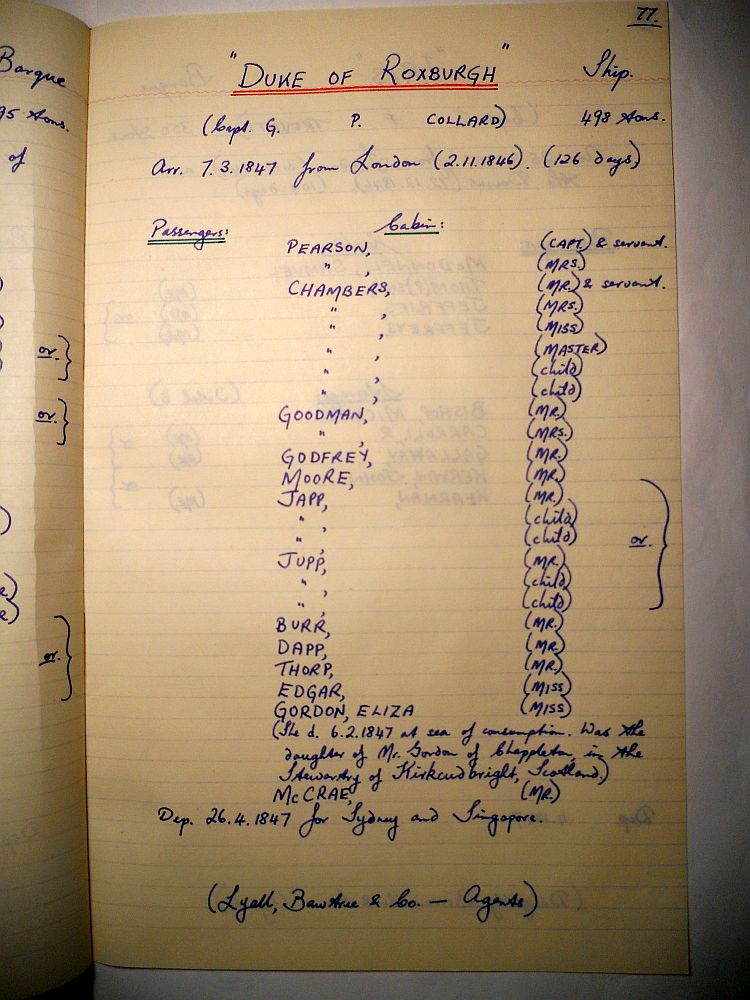 77.
Barque
"DUKE OF ROXBURGH" Ship.
95 tons.
(Capt. G. P. COLLARD) 498 tons.
of
Arr. 7.3.1847 from London (2.11.1846). (126 days)
Passengers: Cabin:
PEARSON, (CAPT.) & servant.
" , (MRS.)
CHAMBERS, (MR.) & servant.
" , (MRS.)
" , (MISS)
or. " , (MASTER)
" , (child)
" , (child)
or. GOODMAN, (MR.)
" , (MRS.)
GODFREY, (MR.)
MOORE, (MR.)
JAPP, (MR.)
" , (child)
" , (child) or.
JUPP, (MR.)
" , (child)
" , (child)
BURR, (MR.)
or. DAPP, (MR.)
THORP, (MR.)
EDGAR, (MISS)
GORDON, ELIZA (MISS)
(She d. 6.2.1847 at sea of consumption. Was the
daughter of Mr. Gordon of Chappleton, in the
Stewartry of Kirkcudbright, Scotland.)
McCRAE, (MR.)
Dep. 26.4.1847 for Sydney and Singapore.
(Lyall, Bawtree & Co. — Agents)